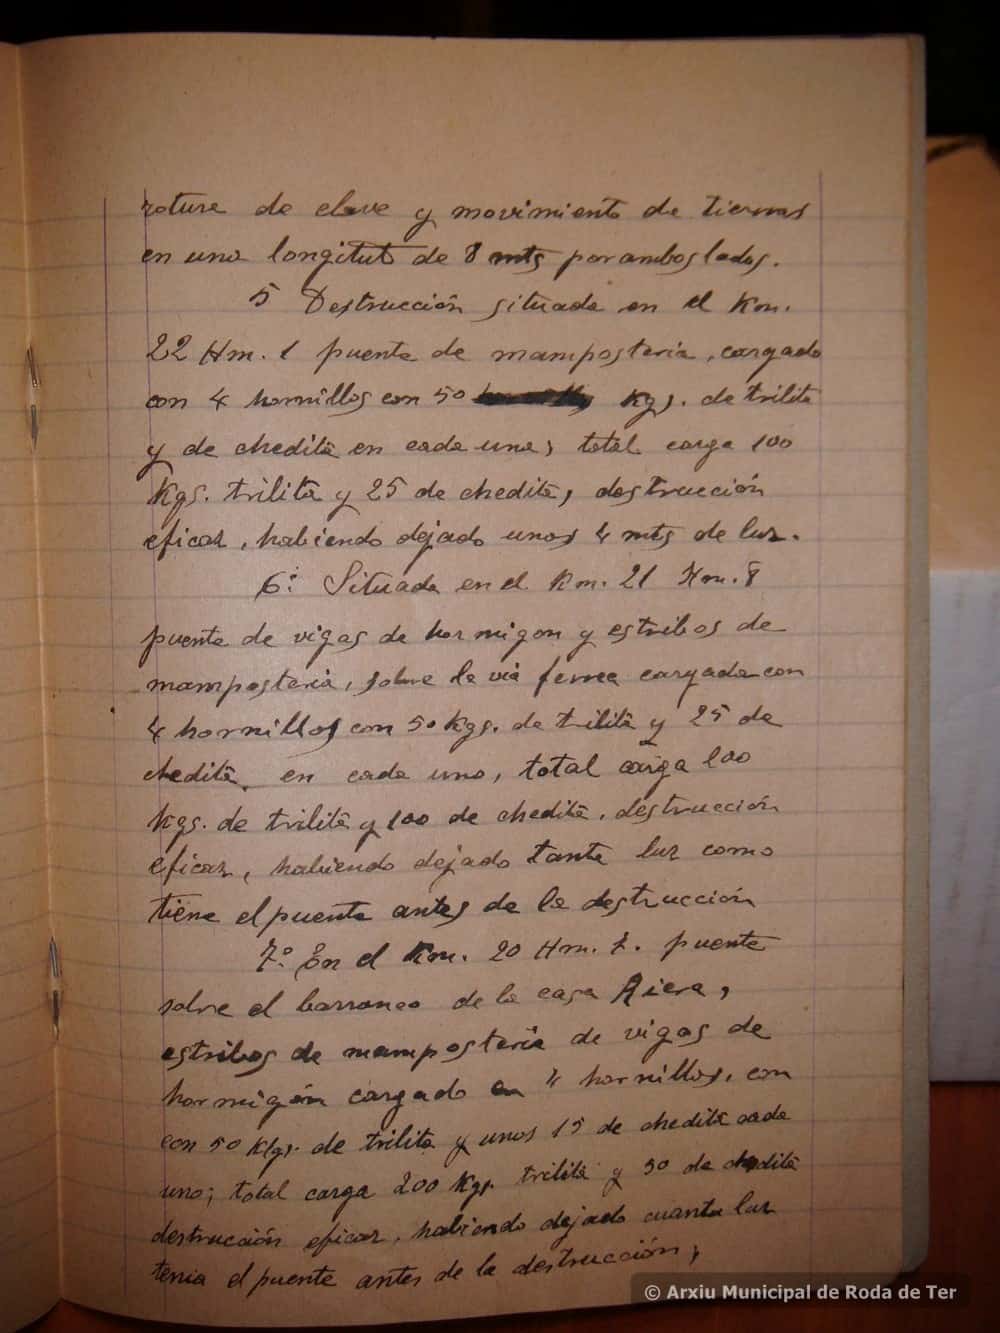 rotura de clave y movimiento de tierras
en una longitut de 8 mts por ambos lados.
5 Destrucción situada en el Km.
22 Hm. 1 puente de mamposteria, cargado
con 4 hornillos con 50 Kgs. de trilita
y de chedita en cada uno, total carga 100
Kgs. trilita y 25 de chedita, destrucción
eficaz, habiendo dejado unos 4 mts de luz.
6º Situada en el Km. 21 Hm. 8
puente de vigas de hormigon y estribos de
mamposteria, sobre la via ferrea cargada con
4 hornillos con 50 Kgs. de trilita y 25 de
chedita en cada uno, total carga 100
Kgs. de trilita y 100 de chedita, destrucción
eficaz, habiendo dejado tanta luz como
tiene el puente antes de la destrucción
7º En el Km. 20 Hm. 7. puente
sobre el barranco de la casa Riera,
estribos de mamposteria de vigas de
hormigón cargado en 4 hornillos, con
con 50 Klgs. de trilita y unos 15 de chedita cada
uno; total carga 200 Kgs. trilita y 50 de chedita
destrucción eficaz, habiendo dejado cuanta luz
tenia el puente antes de la destrucción,
© Arxiu Municipal de Roda de Ter